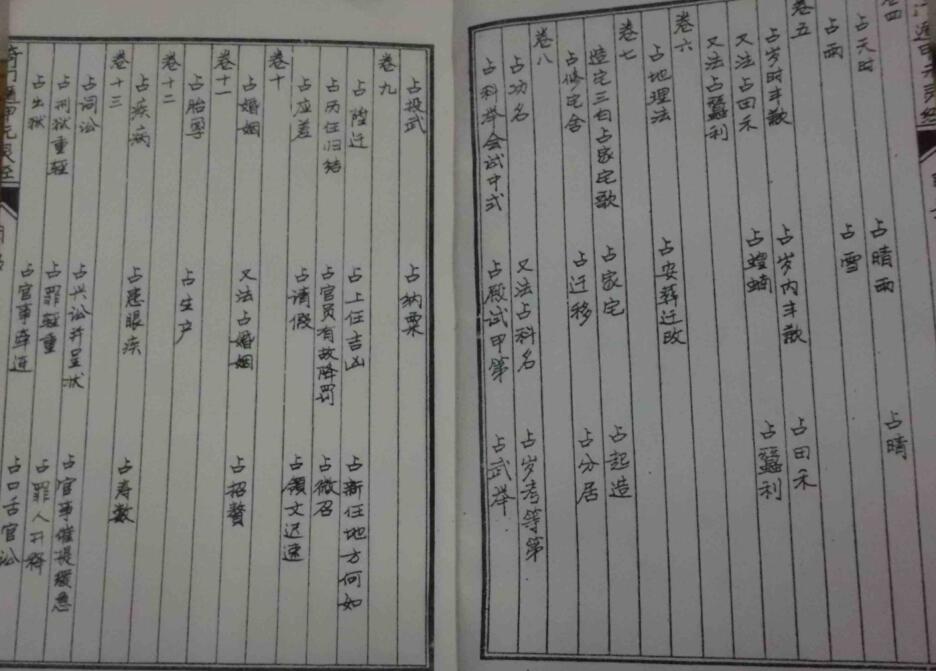 卷四
占天时 占晴雨 占晴
占雨 占雪
卷五
占岁时丰歉 占岁内丰歉 占田禾
又法占田禾 占螳蝻 占蚕利
又法占蚕利
卷六
占地理法 占安葬迁改
卷七
造宅三白占家宅歌 占家宅 占起造
占修宅舍 占迁移 占分居
卷八
占功名 又法占科名 占岁考等第
占科举会试中式 占殿试甲第 占武举
占投武 占纳粟
卷九
占陞迁 占上任吉凶 占新任地方何如
占历任归结 占官员有故降罚 占微召
占应差 占请假 占领文迟速
卷十
占婚姻 又法占婚姻 占招赘
卷十一
占胎孕 占生产
卷十二
占疾病 占患眼疾 占寿数
卷十三
占词讼 占兴讼并呈状 占官事催提缓急
占刑狱重轻 占罪轻重 占罪人开释
占出狱 占官事牵连 占口舌官讼